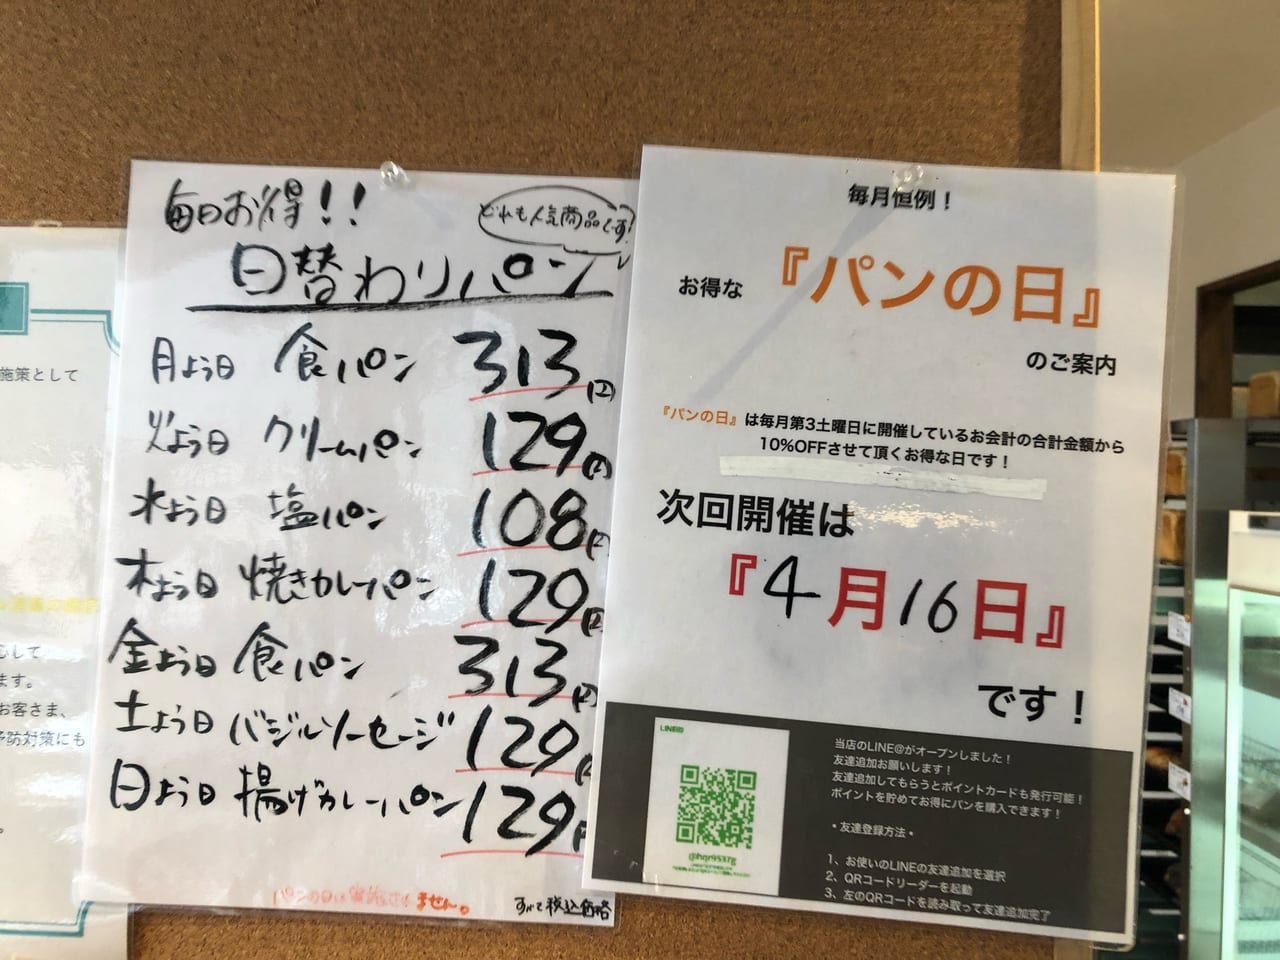 施策として
して
ます。
お客さま、
予防対策にも
毎日お得!!
どれも人気商品です!
日替わりパン
月よう日 食パン 313円
火よう日 クリームパン 129円
水よう日 塩パン 108円
木よう日 焼きカレーパン 129円
金よう日 食パン 313円
土よう日 バジルソーセージ 129円
日よう日 揚げカレーパン 129円
パンの日は実施しません。
すべて税込価格
毎月恒例!
お得な『パンの日』
のご案内
『パンの日』は毎月第3土曜日に開催しているお会計の合計金額から
10%OFFさせて頂くお得な日です!
次回開催は
『4月16日』
です!
LINE@
@hqr9537g
当店のLINE@がオープンしました!
友達追加お願いします!
友達追加してもらうとポイントカードも発行可能!
ポイントを貯めてお得にパンを購入できます!
・友達登録方法・
1、お使いのLINEの友達追加を選択
2、QRコードリーダーを起動
3、左のQRコードを読み取って友達追加完了